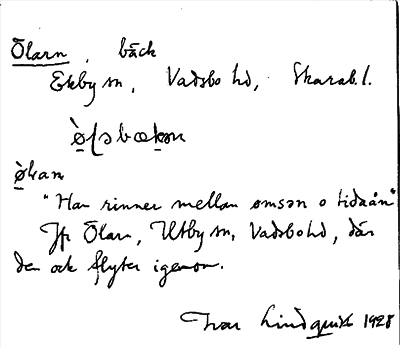 Ölarn, bäck
Ekby sn, Vadsbo hd, Skarab. l.
"Han rinner mellan ømsən o tidaån"
Jfr Ölarn, Utby sn, Vadsbo hd, där
den ock flyter igenom.
Ivar Lindquist 1928